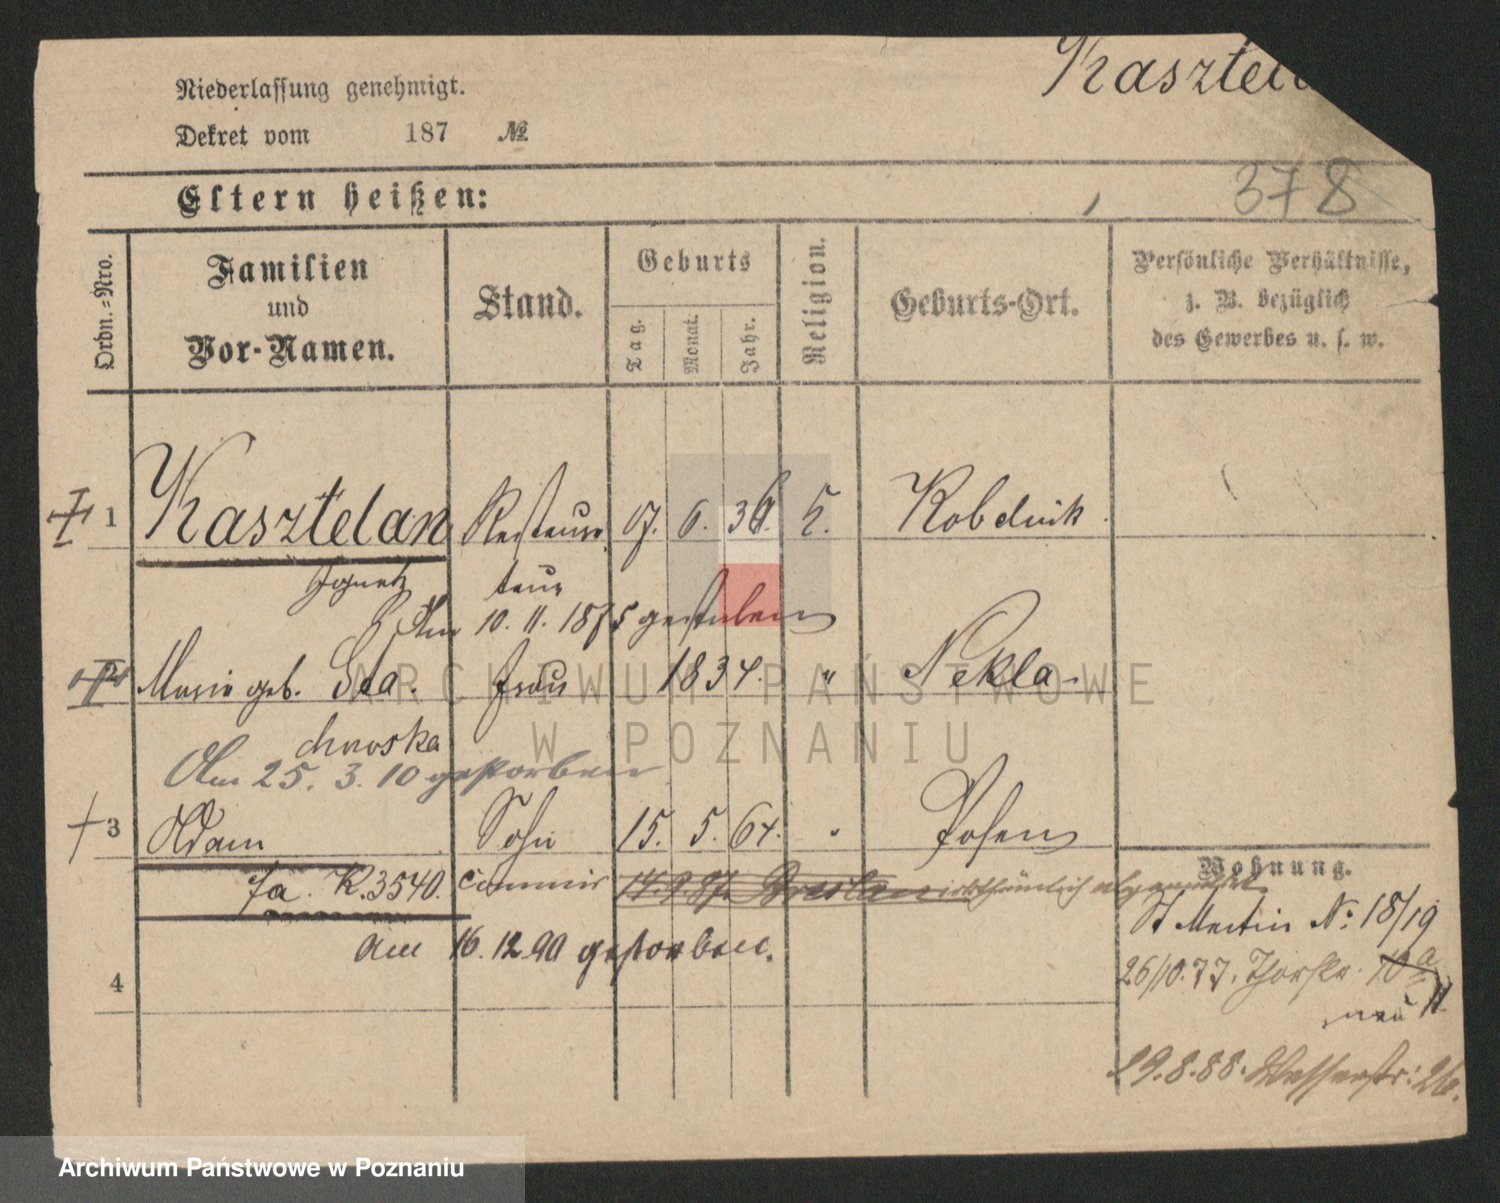 Kasztela
Niederlassung genehmigt.
Dekret vom 187 №
378
Eltern heißen:
Ordn.=Nro.
Familien
und
Vor-Namen.
Stand.
Geburts
Tag.
Monat.
Jahr.
Religion.
Geburts-Ort.
Persönliche Verhältnisse,
z. B. bezüglich
des Gewerbes u. s. w.
1 Kasztelan Restaura 17. 6. 36. k. Kobelnik
Ignatz teur
Am 10. 11. 1875 gestorben
2 Marie geb. Sta Frau 1834. " Nekla.
chowska
Am 25. 3. 10 gestorben
3 Adam Sohn 15. 5. 64. " Posen
fa. K. 3540. Commis 14. 9. 87. Breslau
am 16. 12. 90 gestorben.
4
Wohnung.
St Martin No: 18/19
26/10. 77.
neu 11.
29. 8. 88. Wasserstr: 26.
ARCHIWUM PAŃSTWOWE
W POZNANIU
Archiwum Państwowe w Poznaniu